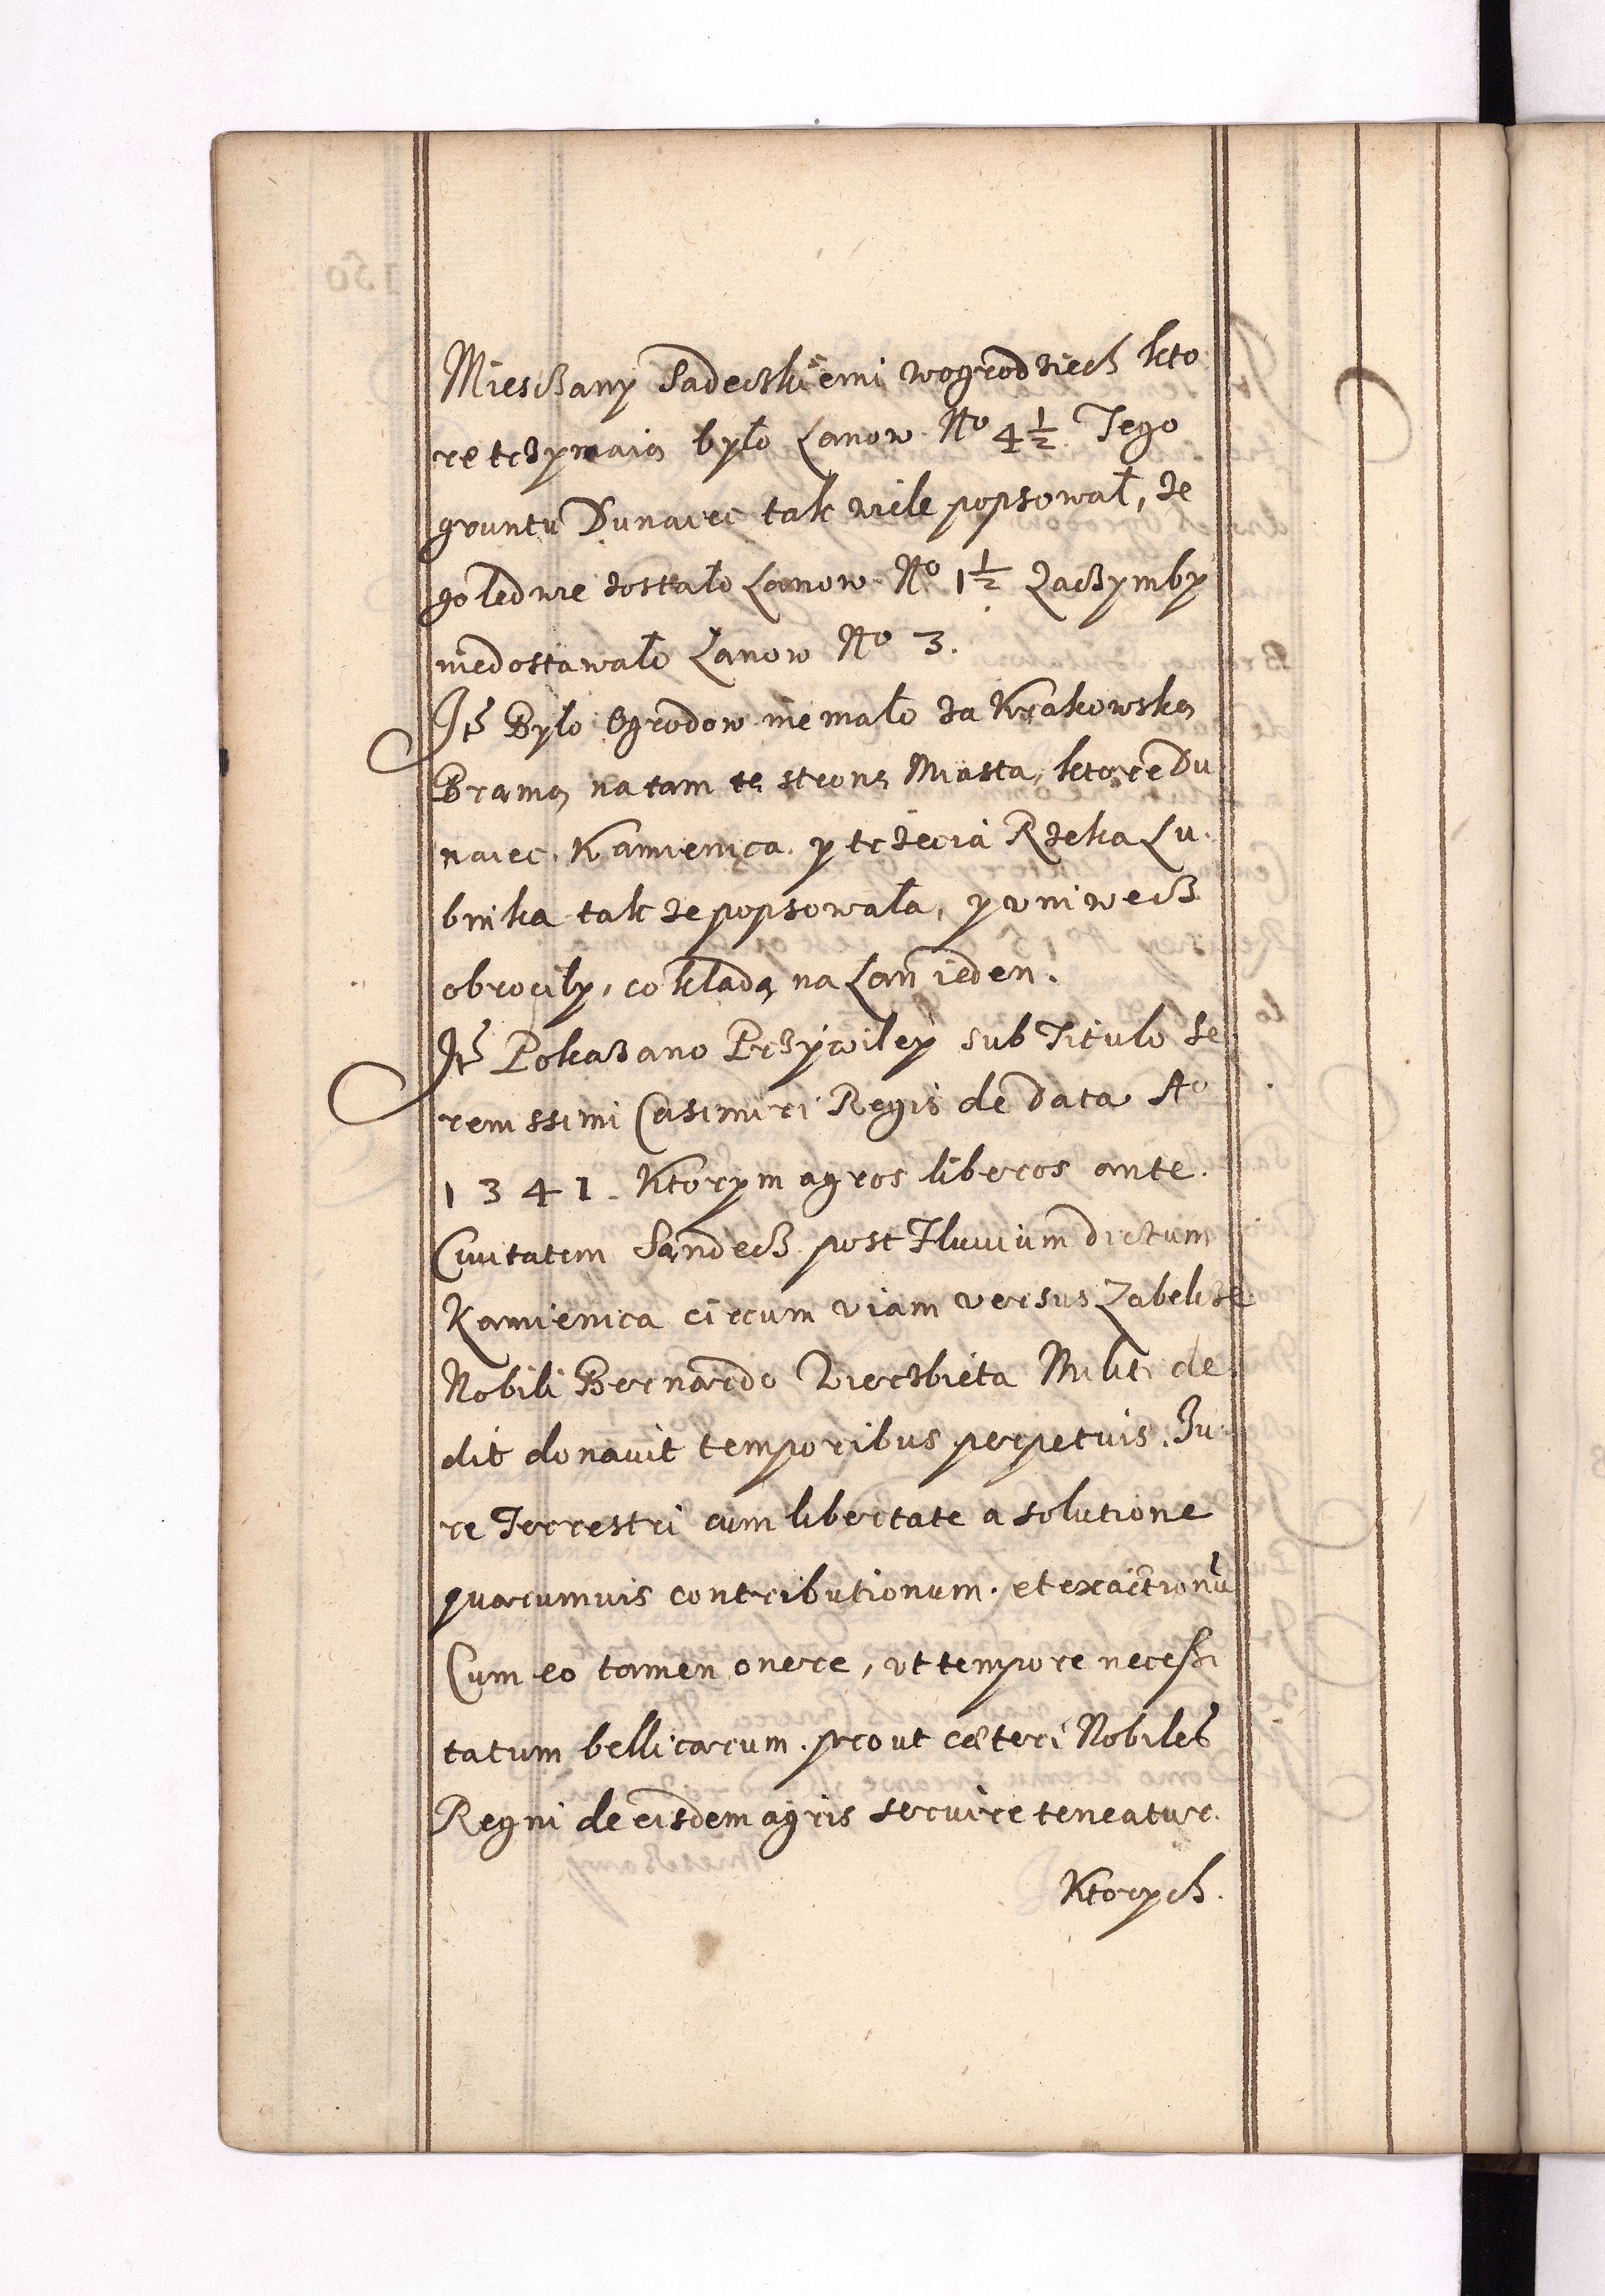 Miesczany Sadeczkiemi wogrodziech kto
re trzymaią było Łanow No 4 1/2 Tego
gruntu Dunaiec tak wiele popsował, ze
go ledwie zostało Łanow No 1 1/2 Zaczymby
niedostawało Łanow No 3.
Itẽ Było Ogrodow niemało za Krakowską
Bramą na tam tę stronę Miasta, ktore Du
naiec, Kamienica, y trzecia Rzeka Lu
binka takze popsowała, y vniwecz
obrociły, co kładą na Łan ieden.
Itẽ Pokazano Przywiley sub Titulo Se
renissimi Casimiri Regis de Data Ao
1341. Ktorym agros liberos ante
Ciuitatem Sandecz post Fluuium dictum
Kamienica circum viam versus Zabelcze
Nobili Bernardo Wierzbieta Militi de
dit donauit temporibus perpetuis. Iu
re Terrestri cum libertate a solutione
quarumuis contributionum, et exactionũ
Cum eo tamen onere, vt tempore necessi
tatum bellicarum, prout cæteri Nobiles
Regni de eisdem agris seruire teneatur.
Ktorych.